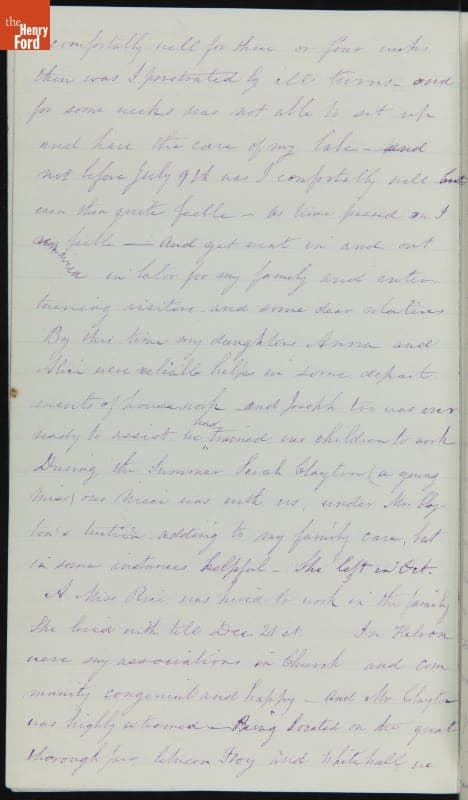 the
Henry
Ford
comfortably well for three or four weeks
then was I prostrated by ill turns and
for some weeks was not able to sit up
and have the care of my babe - and
not before July 9th was I comfortably well but
even then quite feeble - as time passed on I
remained feeble — and yet went in and out
in labor for my family and enter-
taining visitors and some dear relatives
By this time my daughters Anna and
Alice were reliable helps in some depart
ments of house work and Joseph too was ever
ready to assist. We had trained our children to work
During the Summer Sarah Clayton (a young
Miss) our niece was with us, under Mr. Clay-
ton's tuition adding to my family care, but
in some instances helpful - She left in Oct.
A Miss Rice was hired to work in the family
She lived with till Dec 21st. In Nelson
were my associations in Church and com
munity congenial and happy - and Mr. Clayton
was highly esteemed - Being located on the great
thoroughfare between Troy and Whitehall we